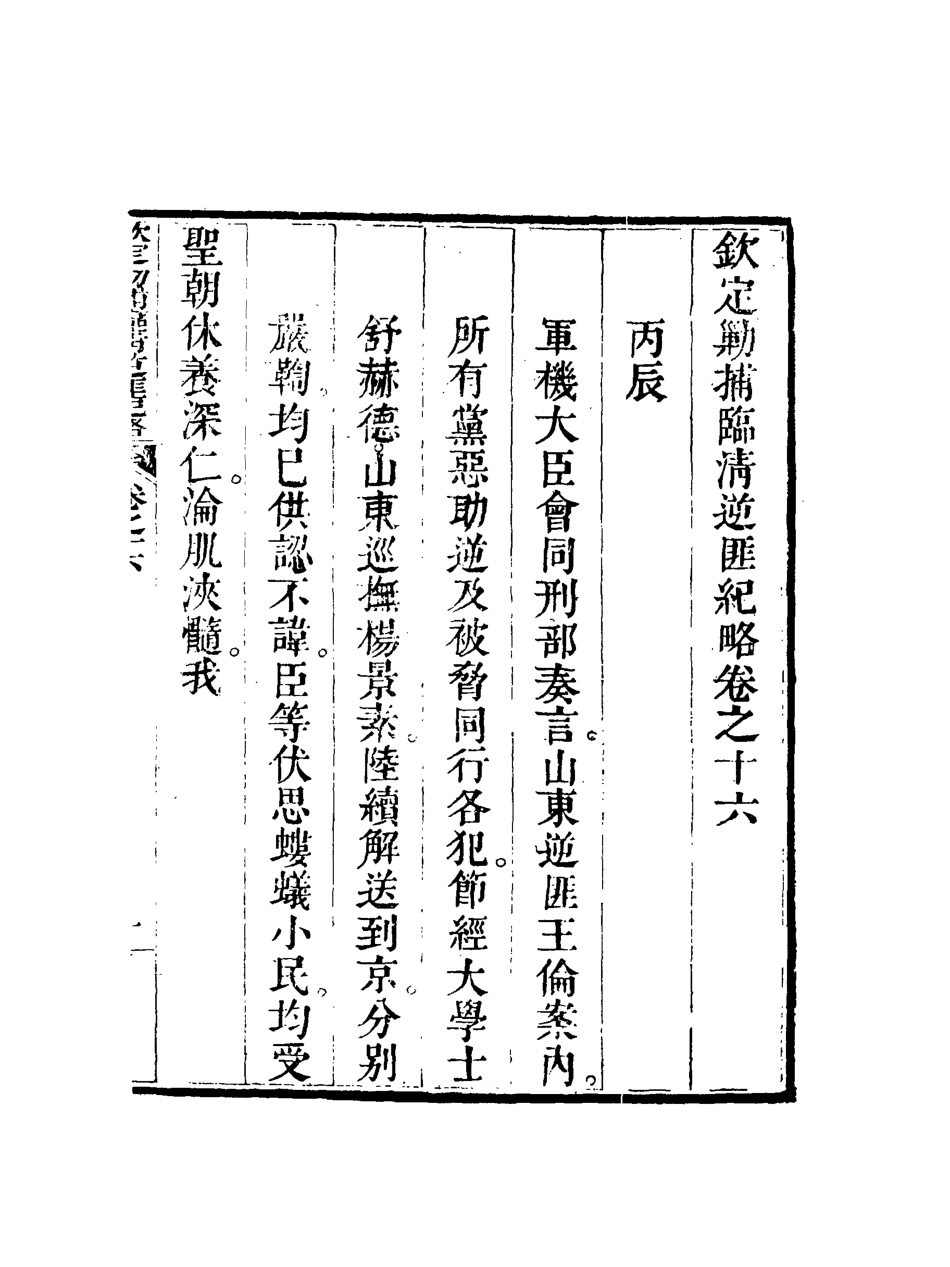 欽定勦捕臨淸逆匪紀略卷之十六
丙辰
軍機大臣會同刑部奏言。山東逆匪王倫案內。
所有黨惡助逆及被脅同行各犯。節經大學士
舒赫德。山東巡撫楊景素。陸續解送到京。分别
嚴鞫。均已供認不諱。臣等伏思螻蟻小民。均受
聖朝休養深仁。淪肌浹髓。我